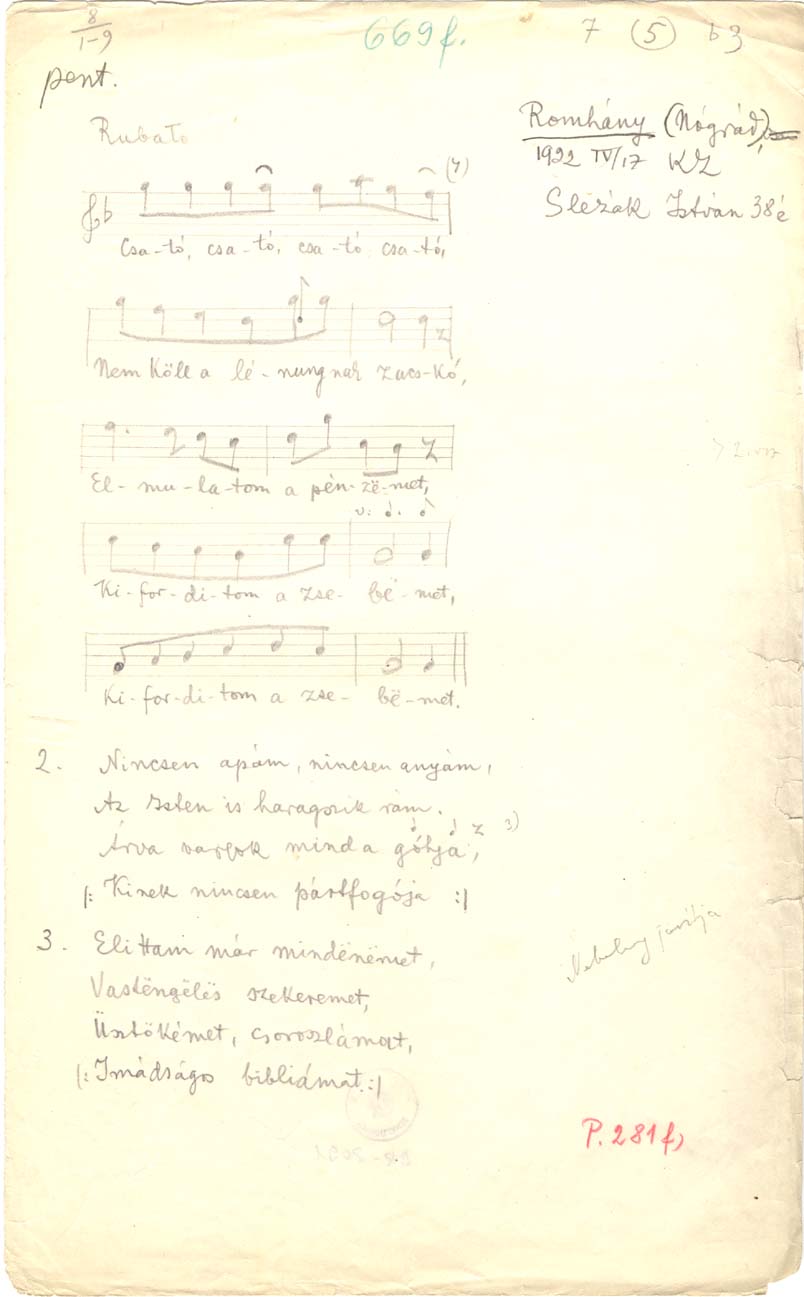 8
1-9
669f.
7 (5) b3
pent.
Rubato
Romhány (Nógrád)
1922 IV/17 KZ
Slezák István 38é
(4)
Csa-tó, csa-tó, csa-tó csa-tó,
Nem köll a lé-nungnak zacs-kó,
El-mu-la-tom a pén-zë-met,
v:
Ki-for-di-tom a zse-bë-met,
Ki-for-di-tom a zse-bë-met.
2. Nincsen apám, nincsen anyám,
Az Isten is haragszik rám.
Árva vagyok mind a gólya, 3)
|: Kinek nincsen pártfogója :|
3. Elittam már mindënëmet,
Vastëngëlës szekeremet,
Üstökémet, csoroszlámat,
|: Imádságos bibliámat :|
P. 281f)